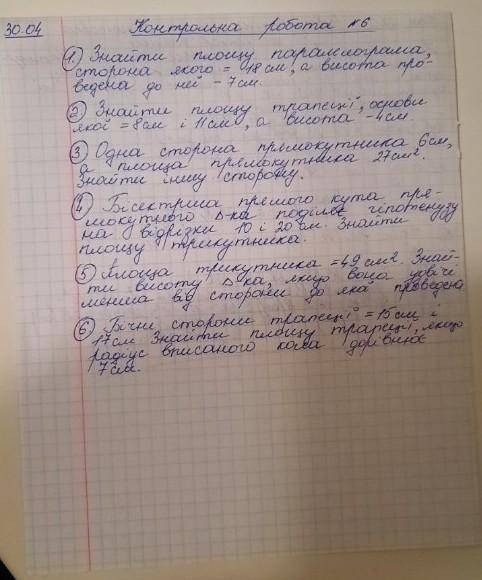 30.04 Контрольна робота №6
1. Знайти площу паралелограма,
сторона якого = 18 см, а висота про-
ведена до неї - 7 см.
2 Знайти площу трапеції, основи
якої = 8 см і 11 см, а висота - 4 см.
3 Одна сторона прямокутника 6 см,
а площа прямокутника 27 см².
Знайти іншу сторону.
4 Бісектриса прямого кута пря-
мокутного Δ-ка поділяє гіпотенузу
на відрізки 10 і 20 см. Знайти
площу трикутника.
5 Площа трикутника = 49 см². Знай-
ти висоту Δ-ка, якщо вона удвічі
менша від сторони до якої проведена
6 Бічні сторони трапеції = 15 см і
17 см Знайти площу трапеції, якщо
радіус вписаного кола дорівнює
7 см.